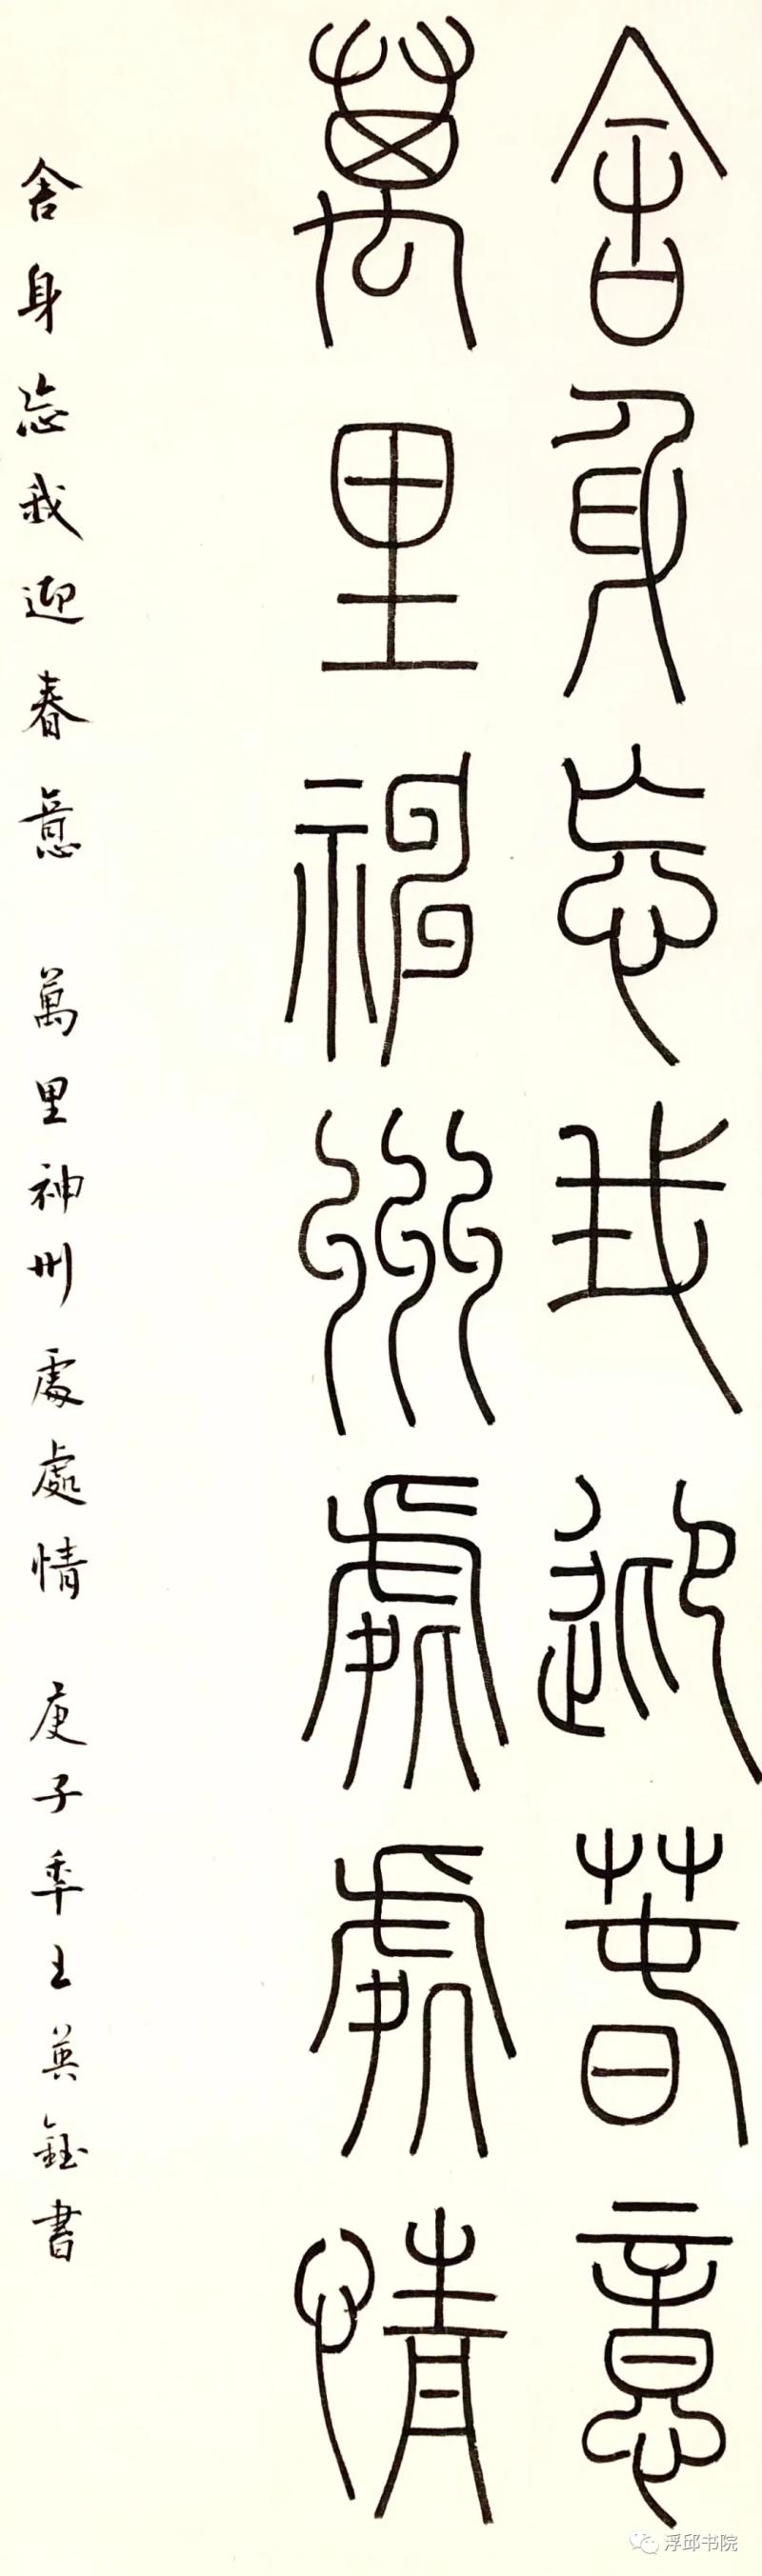 舍身忘我迎春意
萬里神州處處情
舍身忘我迎春意 萬里神州處處情 庚子年王英鈺書
浮邱书院